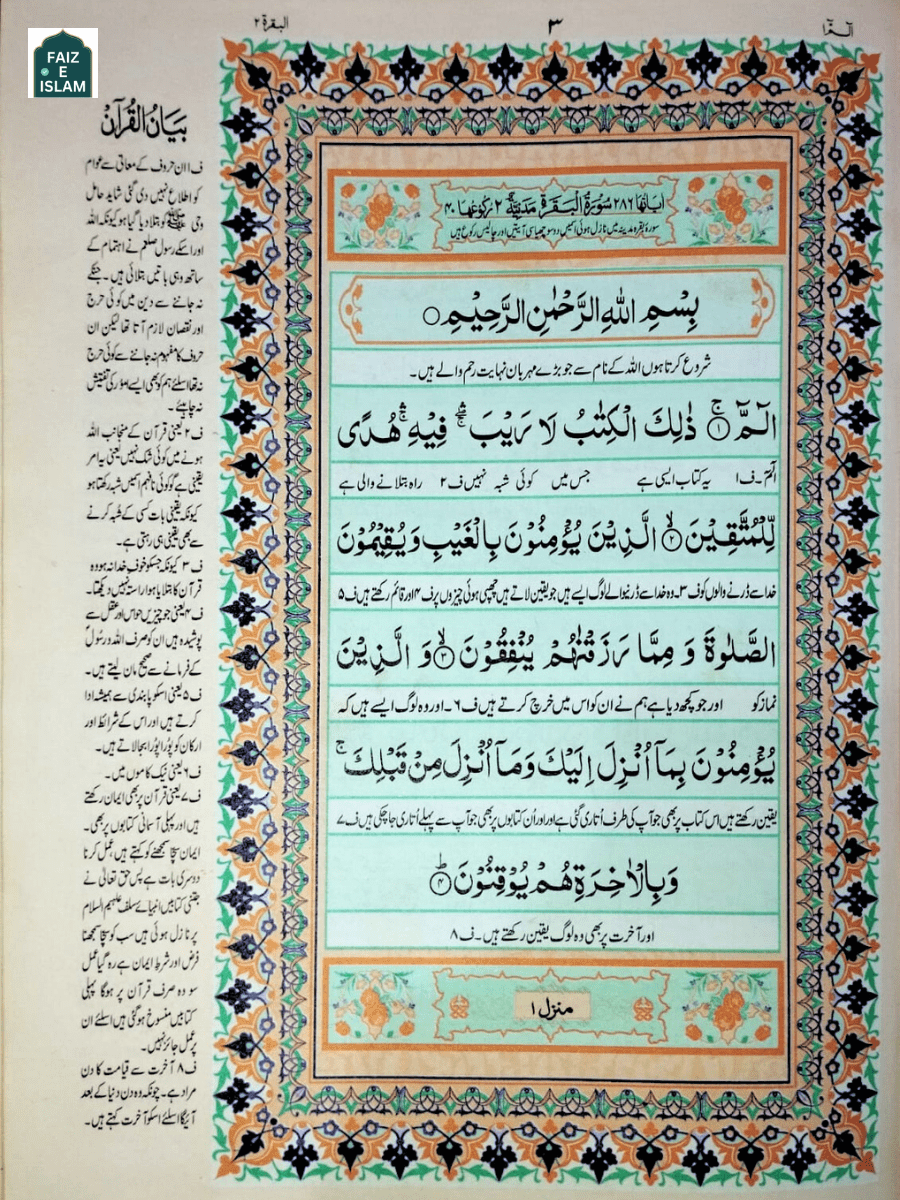 FAIZ
E
ISLAM
الٓمّٓ ١
٣
البقرة ٢
اٰیاتھا ٢٨٦ سُوْرَةُ الْبَقَرَةِ مَدَنِیَّةٌ ٢ رُکُوْعَاتُھَا ۴۰
سورۂ بقرہ مدینہ میں نازل ہوئی اسمیں دو سو چھیاسی آیتیں اور چالیس رکوع ہیں
بِسْمِ اللّٰهِ الرَّحْمٰنِ الرَّحِيْمِ ○
شروع کرتا ہوں اللہ کے نام سے جو بڑے مہربان نہایت رحم والے ہیں۔
الٓمّٓ ۚ﴿۱﴾ ذٰلِكَ الْكِتٰبُ لَا رَيْبَ ۛۖ فِيْهِ ۛۚ هُدًى
الٓمّٓ۔ ف۱ یہ کتاب ایسی ہے جس میں کوئی شبہ نہیں ف۲ راہ بتلانے والی ہے
لِّلْمُتَّقِيْنَ ۙ﴿۲﴾ الَّذِيْنَ يُؤْمِنُوْنَ بِالْغَيْبِ وَيُقِيْمُوْنَ
خدا سے ڈرنے والوں کو ف۳۔ وہ خدا سے ڈرنیوالے لوگ ایسے ہیں جو یقین لاتے ہیں چھپی ہوئی چیزوں پر ف۴ اور قائم رکھتے ہیں ف۵
الصَّلٰوةَ وَ مِمَّا رَزَقْنٰهُمْ يُنْفِقُوْنَ ۙ﴿۳﴾ وَ الَّذِيْنَ
نماز کو اور جو کچھ دیا ہے ہم نے ان کو اس میں خرچ کرتے ہیں ف۶۔ اور وہ لوگ ایسے ہیں کہ
يُؤْمِنُوْنَ بِمَاۤ اُنْزِلَ اِلَيْكَ وَمَاۤ اُنْزِلَ مِنْ قَبْلِكَ ۚ
یقین رکھتے ہیں اس کتاب پر بھی جو آپ کی طرف اُتاری گئی ہے اور اُن کتابوں پر بھی جو آپ سے پہلے اُتاری جاچکی ہیں ف۷
وَبِالْاٰخِرَةِ هُمْ يُوْقِنُوْنَ ؕ﴿۴﴾
اور آخرت پر بھی وہ لوگ یقین رکھتے ہیں۔ ف۸
منزل ۱
بَیَانُ القُرآن
ف۱ ان حروف کے معانی سے عوام
کو اطلاع نہیں دی گئی شاید حامل
وحی ﷺ کو بتلا دیا گیا ہو کیونکہ اللہ
اور اسکے رسول صلعم نے اہتمام کے
ساتھ وہی باتیں بتلائی ہیں۔ جنکے
نہ جاننے سے دین میں کوئی حرج
اور نقصان لازم آتا تھا لیکن ان
حروف کا مفہوم نہ جاننے سے کوئی حرج
نہ تھا اسلئے ہم کو بھی ایسے امور کی تفتیش
نہ چاہیئے۔
ف۲ یعنی قرآن کے منجانب اللہ
ہونے میں کوئی شک نہیں یعنی یہ امر
یقینی ہے گو کوئی نافہم اسمیں شبہ رکھتا ہو
کیونکہ یقینی بات کسی کے شبہ کرنے
سے بھی یقینی ہی رہتی ہے۔
ف۳ کیونکہ جسکو خوف خدا نہ ہو وہ
قرآن کا بتلایا ہوا راستہ نہیں دیکھتا۔
ف۴ یعنی جو چیزیں حواس اور عقل سے
پوشیدہ ہیں ان کو صرف اللہ و رسولؐ
کے فرمانے سے صحیح مان لیتے ہیں۔
ف۵ یعنی اسکو پابندی سے ہمیشہ ادا
کرتے ہیں اور اس کے شرائط اور
ارکان کو پُورا پُورا بجالاتے ہیں۔
ف۶ یعنی نیک کاموں میں۔
ف۷ یعنی قرآن پر بھی ایمان رکھتے
ہیں اور پہلی آسمانی کتابوں پر بھی۔
ایمان سچا سمجھنے کو کہتے ہیں عمل کرنا
دوسری بات ہے پس حق تعالٰی نے
جتنی کتابیں انبیائے سلف علیہم السلام
پر نازل ہوئی ہیں سب کو سچا سمجھنا
فرض اور شرطِ ایمان ہے رہ گیا عمل
سو وہ صرف قرآن پر ہوگا پہلی
کتابیں منسوخ ہوگئی ہیں اسلئے ان
پر عمل جائز نہیں۔
ف۸ آخرت سے قیامت کا دن
مراد ہے۔ چونکہ وہ دن دنیا کے بعد
آئیگا اسلئے اسکو آخرت کہتے ہیں۔